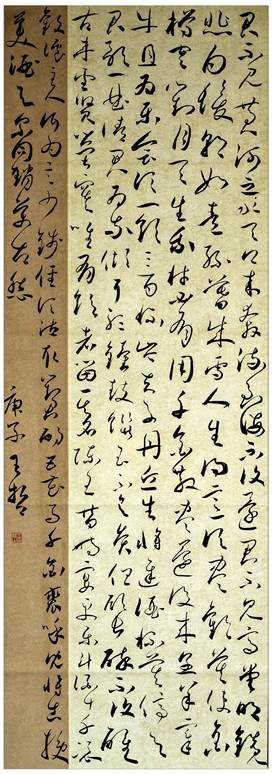 君不見黃河之水天上來奔流到海不復還君不見高堂明鏡
悲白髮朝如青絲暮成雪人生得意須盡歡莫使金
樽空對月天生我材必有用千金散盡還復來烹羊宰
牛且為樂會須一飲三百杯岑夫子丹丘生將進酒杯莫停與
君歌一曲請君為我傾耳聽鐘鼓饌玉不足貴但願長醉不復醒
古來聖賢皆寂寞唯有飲者留其名陳王昔時宴平樂斗酒十千恣
歡謔主人何為言少錢徑須沽取對君酌五花馬千金裘呼兒將出換
美酒與爾同銷萬古愁
庚子 王哲